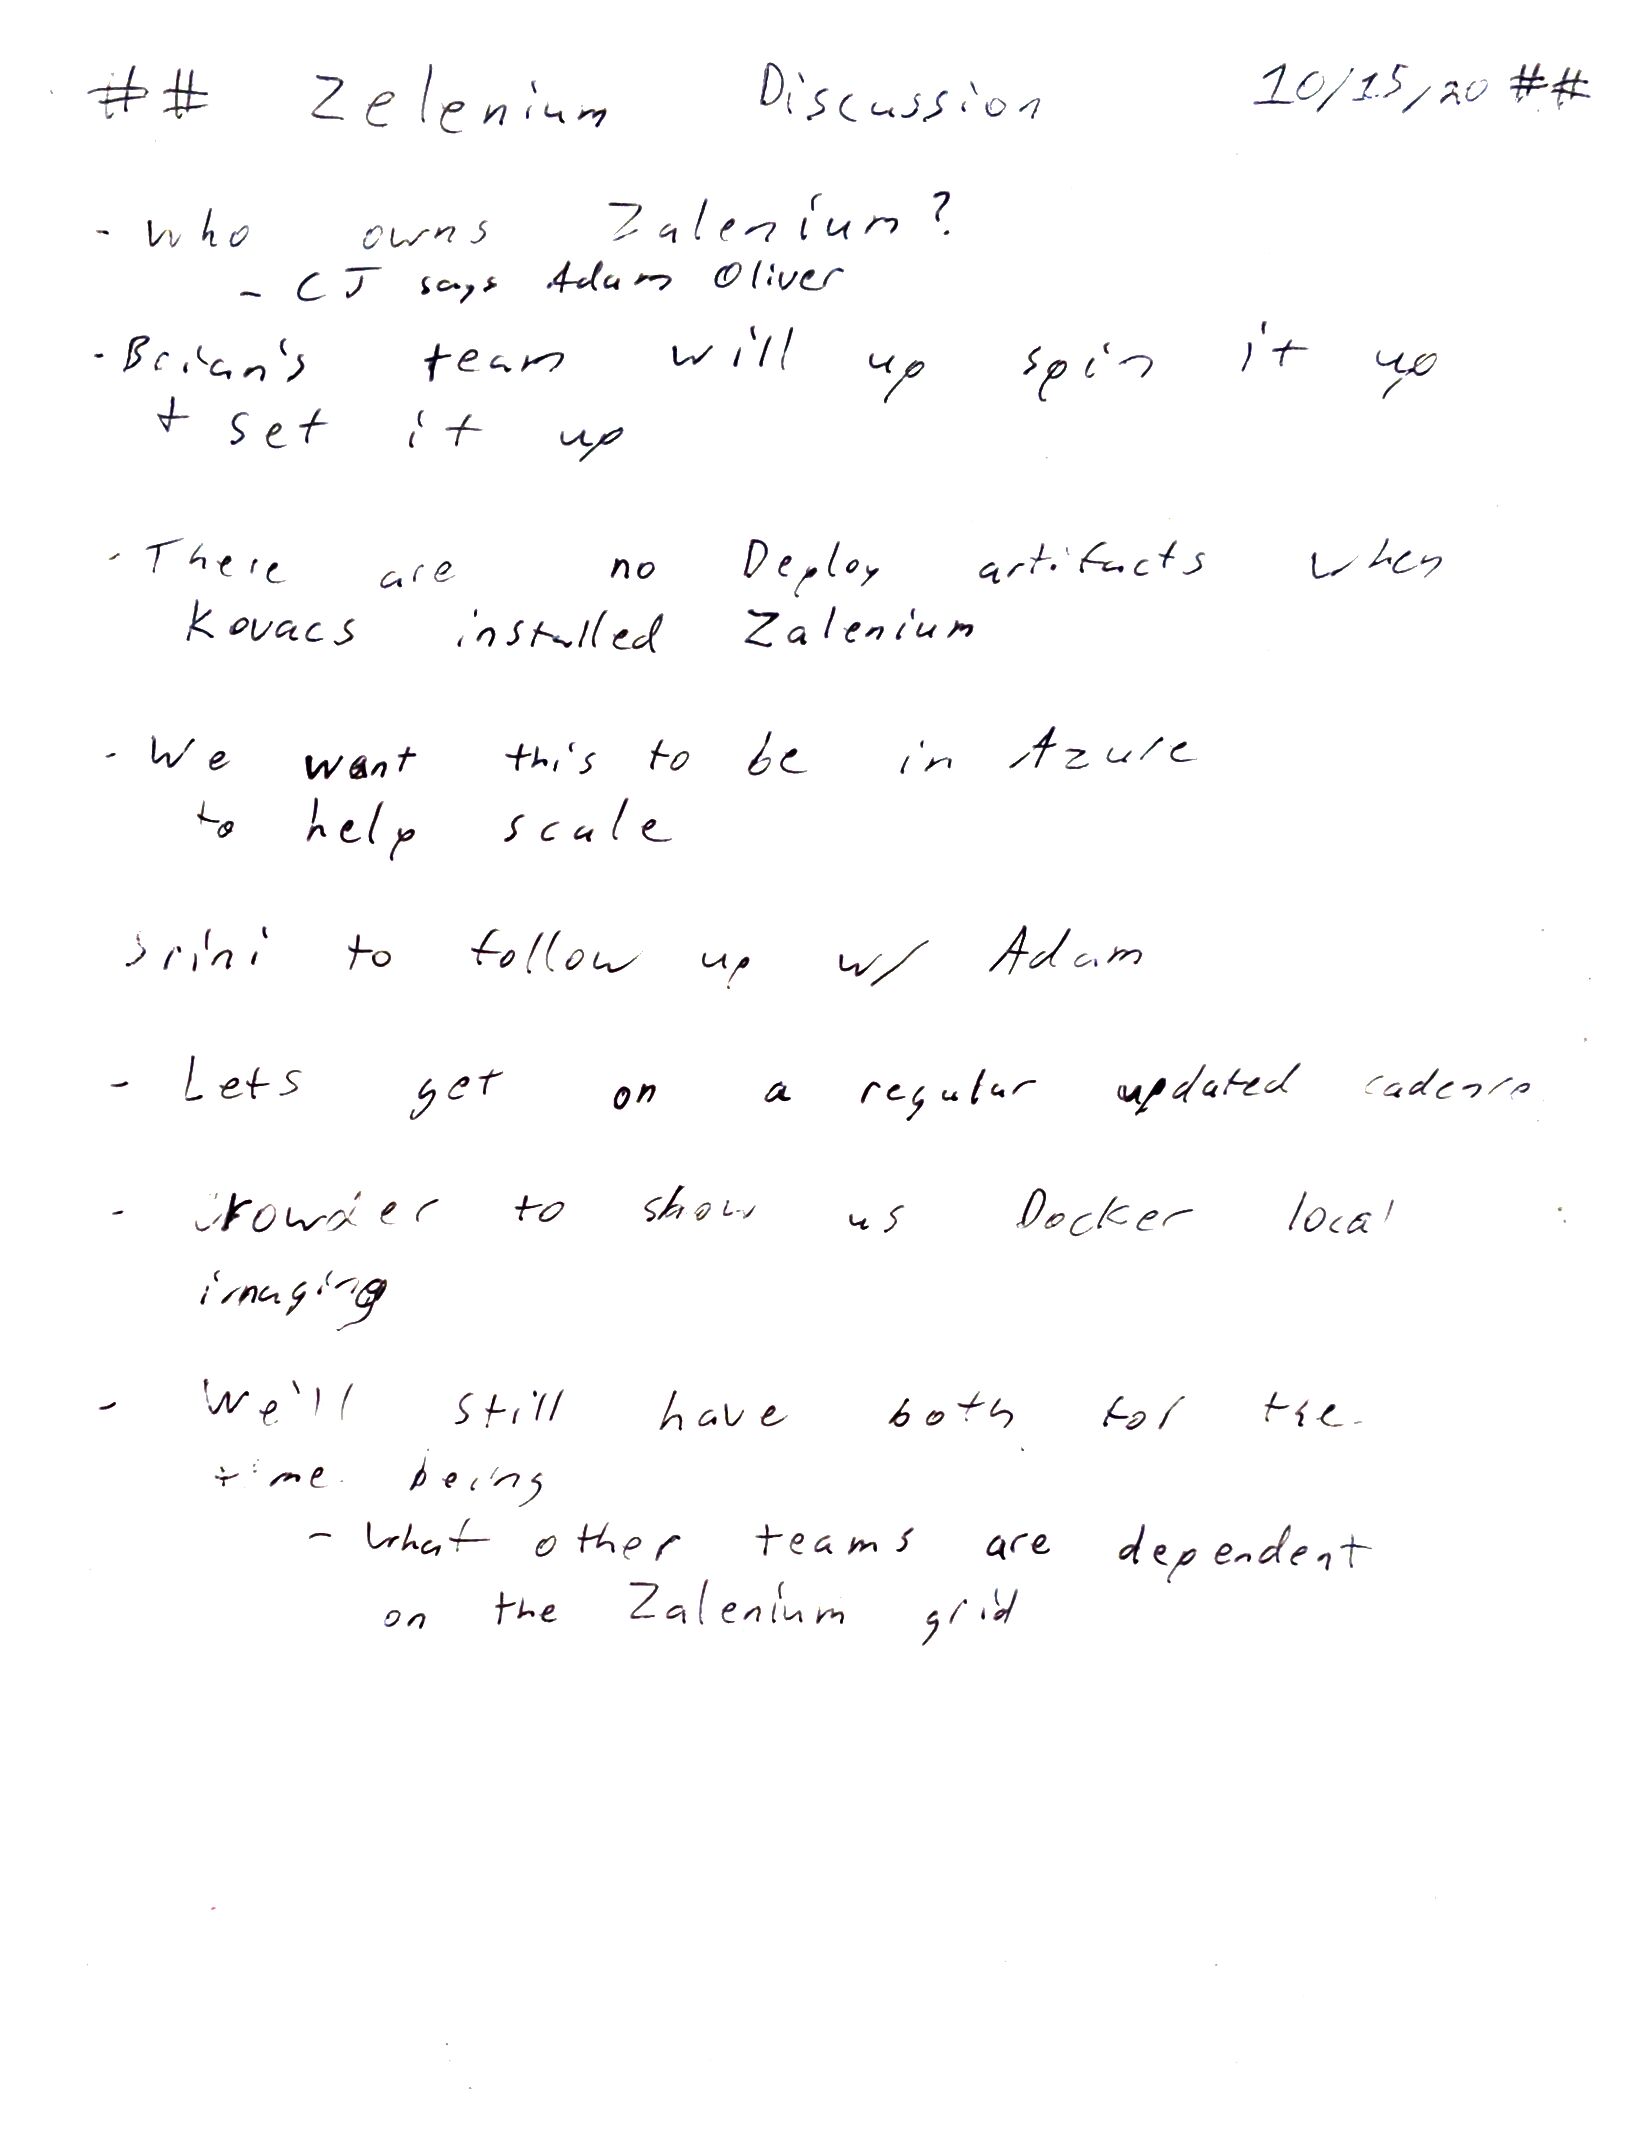 ## Zelenium Discussion 10/15/20 ##
- Who owns Zalenium?
- CJ says Adam Oliver
- Brian's team will up spin it up
+ set it up
- There are no Deploy artifacts when
Kovacs installed Zalenium
- We want this to be in Azure
to help scale
Srini to follow up w/ Adam
- Lets get on a regular updated cadence
- Crowder to show us Docker local
imaging
- We'll still have both for the
time being
- What other teams are dependent
on the Zalenium grid